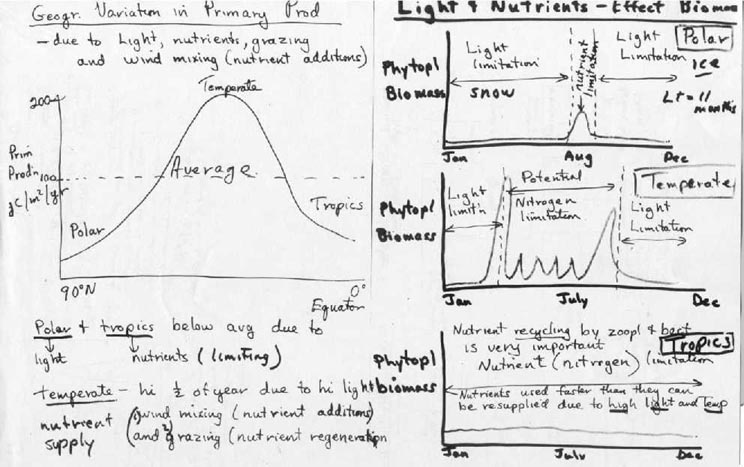 Geogr. Variation in Primary Prod
- due to Light, nutrients, grazing
and wind mixing (nutrient additions)
Temperate
200
Prim
Prod'n
gC/m²/yr
100
Average
Polar
Tropics
90°N
0°
Equator
Polar & tropics below avg due to
light
nutrients (limiting)
temperate - hi ½ of year due to hi light
nutrient
supply
1) wind mixing (nutrient additions)
and 2) grazing (nutrient regeneration
Light & Nutrients - Effect Biomass
Polar
Phytopl
Biomass
Light
limitation
snow
nutrient
limitation
Light
Limitation
ice
Lt = 11
months
Jan
Aug
Dec
Temperate
Phytopl
Biomass
Light
limit'n
Potential
Nitrogen
limitation
Light
Limitation
Jan
July
Dec
Tropics
Phytopl
biomass
Nutrient recycling by zoopl & bact
is very important
Nutrient (nitrogen) limitation
Nutrients used faster than they can
be resupplied due to high light and temp
Jan
July
Dec